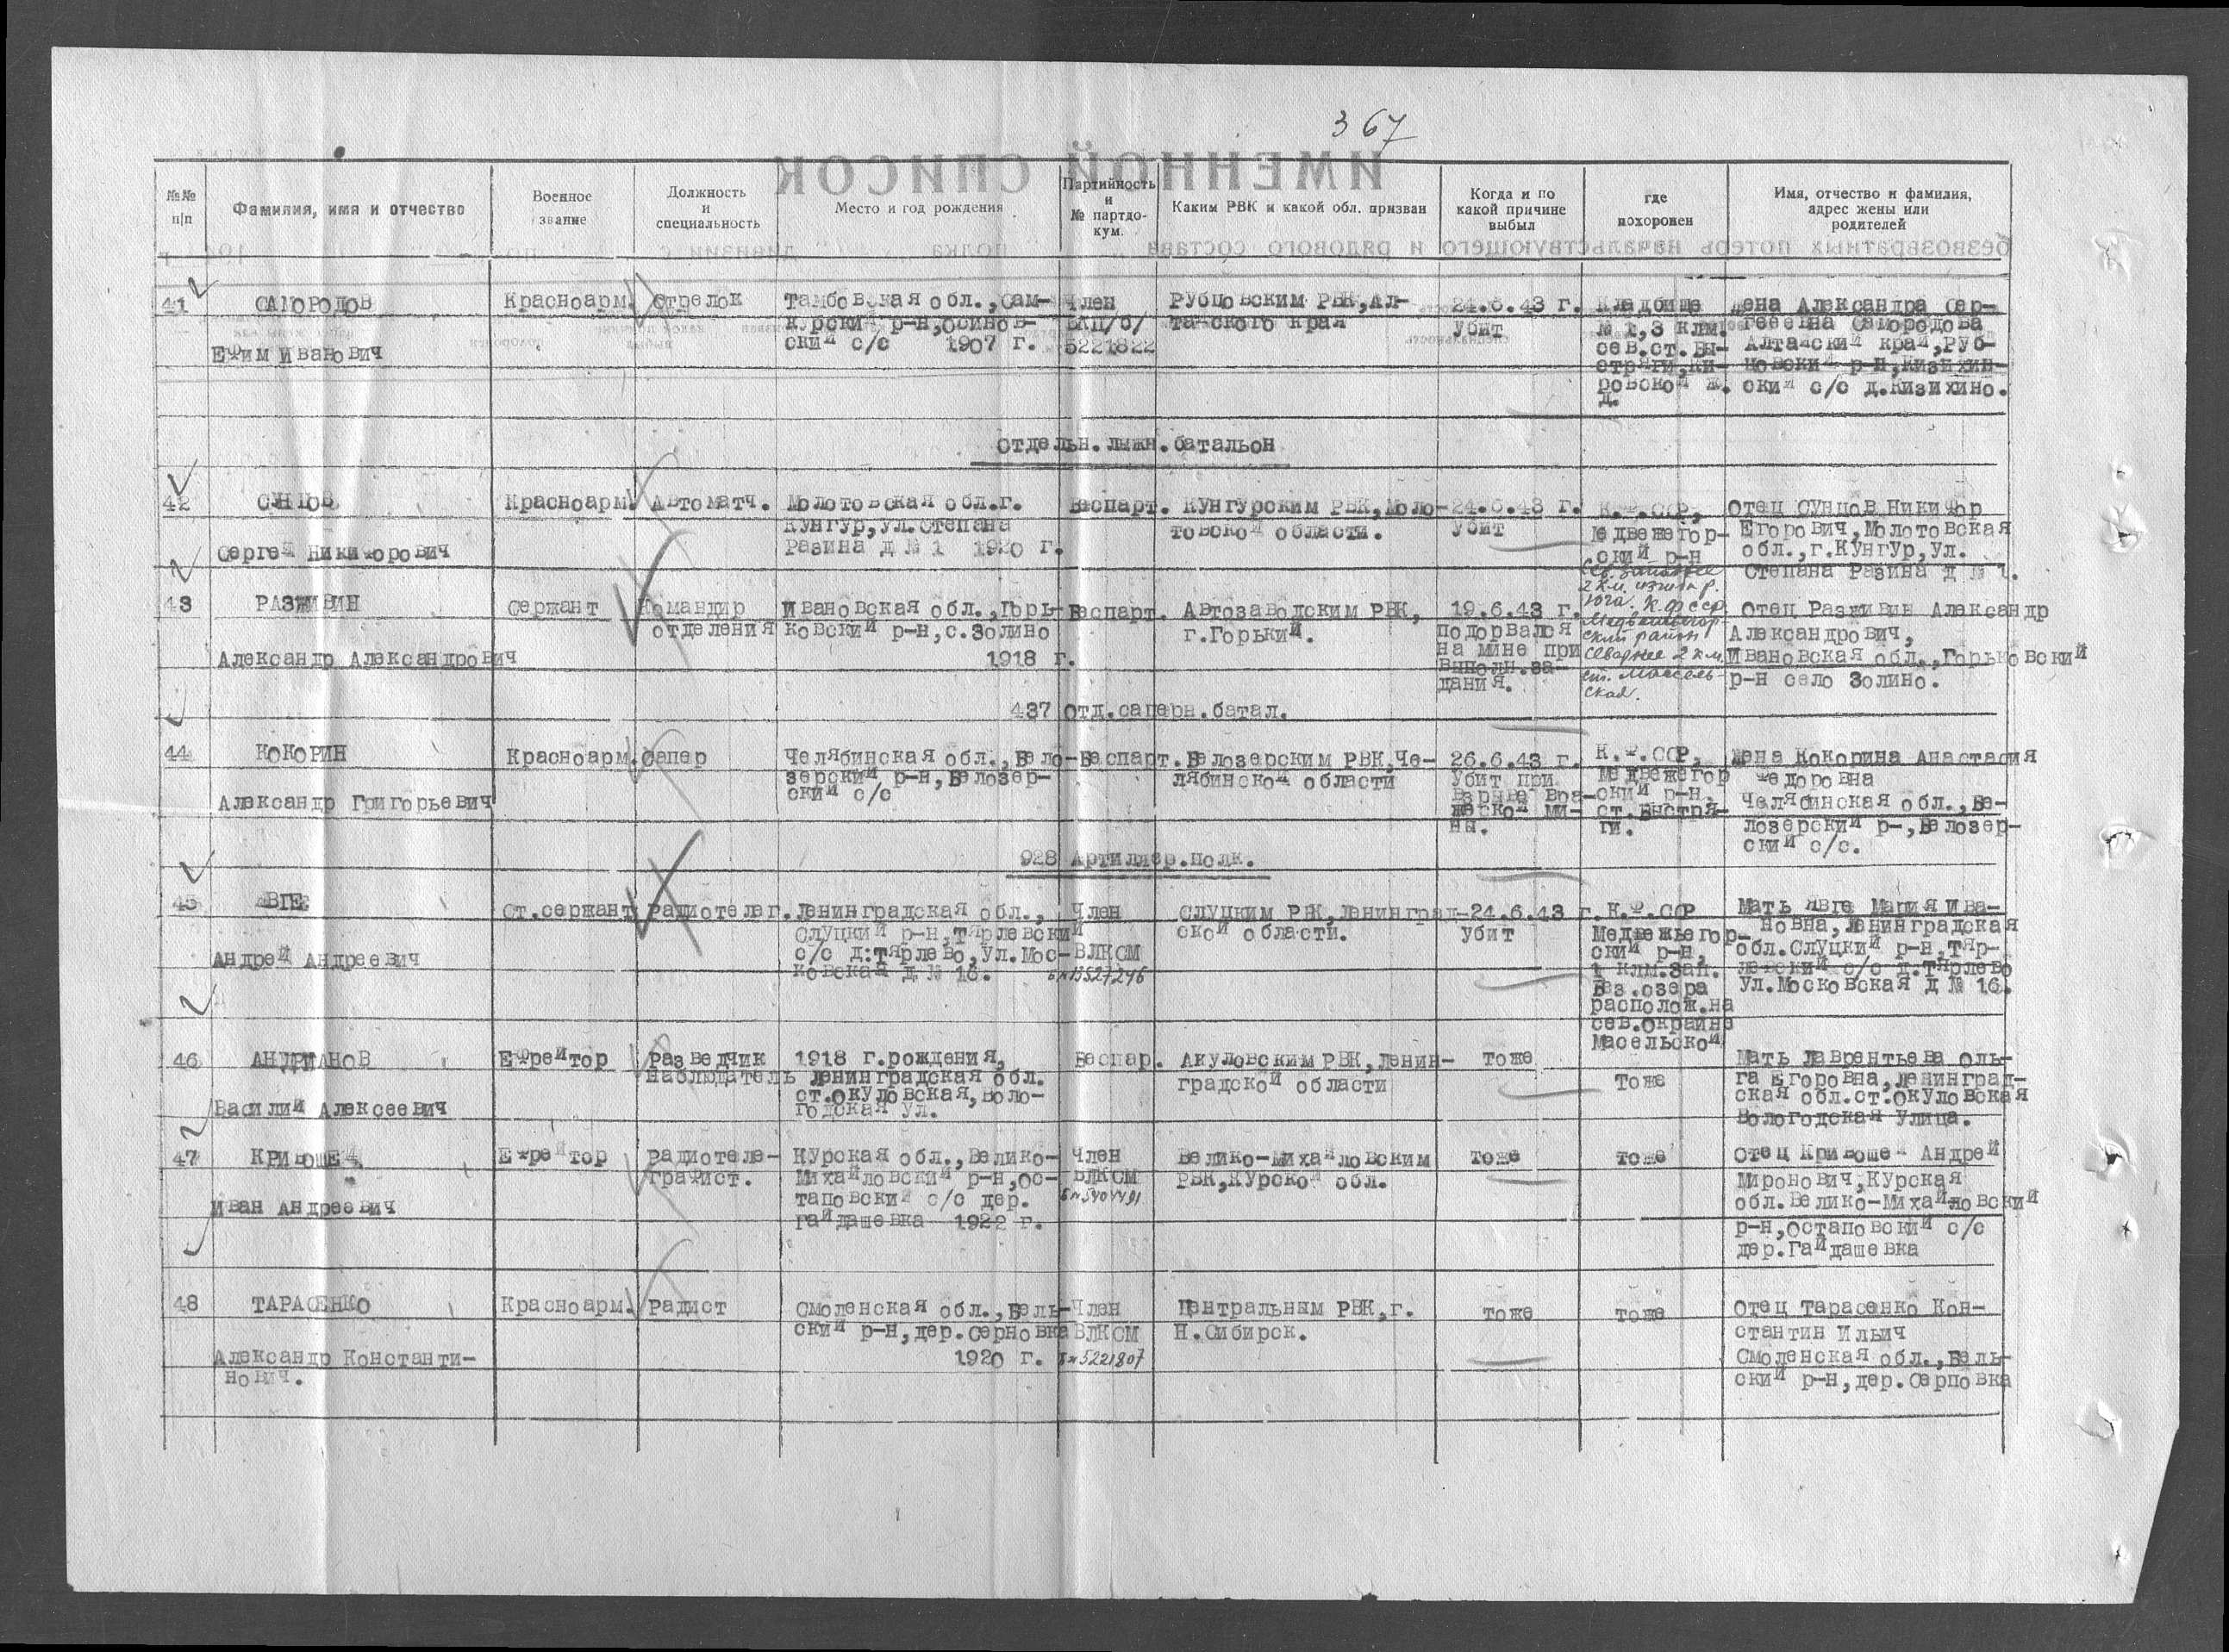 367
№№ п/п
Фамилия, имя и отчество
Военное звание
Должность и специальность
Место и год рождения
Партийность и № партдокум.
Каким РВК и какой обл. призван
Когда и по какой причине выбыл
где похоронен
Имя, отчество и фамилия, адрес жены или родителей
ИМЕННОЙ СПИСОК
безвозвратных потерь начальствующего и рядового состава полка дивизии с по 194
41
САМОРОДОВ
Ефим Иванович
Красноарм.
Стрелок
Тамбовская обл., Сам-
курский р-н, Осинов-
ский с/с 1907 г.
Член
ВКП/б/
5221822
Рубцовским РВК, Ал-
тайского края
24.6.43 г.
убит
Кладбище
№ 1, 3 клм.
сев.ст. Бы-
стряги, Ки-
ровской ж.
д.
Жена Александра Сер-
геевна Самородова
Алтайский край, Руб-
цовский р-н, Кизихин-
ский с/с д.Кизихино.
Отдельн. лыжн. батальон
42
СУНЦОВ
Сергей Никифорович
Красноарм.
Автоматч.
Молотовская обл.г.
Кунгур, ул.Степана
Разина д № 1 1920 г.
Беспарт.
Кунгурским РВК, Моло-
товской области.
24.6.43 г.
убит
К.Ф.ССР,
Медвежегор-
ский р-н
Сев. западнее
2 км.
Отец Сунцов Никифор
Егорович, Молотовская
обл., г.Кунгур, ул.
Степана Разина д № 1.
43
РАЗЖИВИН
Александр Александрович
Сержант
Командир
отделения
Ивановская обл., Горь-
ковский р-н, с.Золино
1918 г.
Беспарт.
Автозаводским РВК,
г.Горький.
19.6.43 г.
подорвался
на мине при
выполн.за-
дания.
К.Ф ССР
Медвежьегор-
ский район
Севернее 2 км.
ст. Масель-
ская.
Отец Разживин Александр
Александрович,
Ивановская обл., Горьковский
р-н село Золино.
437 отд.саперн.батал.
44
КОКОРИН
Александр Григорьевич
Красноарм.
Сапер
Челябинская обл., Бело-
зерский р-н, Белозер-
ский с/с
Беспарт.
Белозерским РВК, Че-
лябинской области
26.6.43 г.
Убит при
взрыве вра-
жеской ми-
ны.
К.Ф.ССР,
Медвежегор
ский р-н,
ст.Быстря-
ги.
Жена Кокорина Анастасия
Федоровна
Челябинская обл., Бе-
лозерский р-, Белозер-
ский с/с.
928 Артиллер.полк.
45
ЯВГЕ
Андрей Андреевич
Ст.сержант
Радиотелег.
Ленинградская обл.,
Слуцкий р-н, Тярлевский
с/с д:Тярлево, ул.Мос-
ковская д № 16.
Член
ВЛКСМ
б№13527246
Слуцким РВК, Ленинград-
ской области.
24.6.43 г.
убит
К.Ф.ССР
Медвежьегор-
ский р-н,
1 клм.зап.
Без.озера
располож.на
сев.окраине
Масельской
Мать Явге Мария Ива-
новна, Ленинградская
обл.Слуцкий р-н, Тяр-
левский с/с д.Тярлево
ул.Московская д № 16.
46
АНДРИАНОВ
Василий Алексеевич
Ефрейтор
Разведчик
наблюдатель
1918 г.рождения,
Ленинградская обл.
ст.Окуловская, Воло-
годская ул.
Беспар.
Акуловским РВК, Ленин-
градской области
тоже
Тоже
Мать Лаврентьева Оль-
га Егоровна, Ленинград-
ская обл.ст.Окуловская
Вологодская улица.
47
КРИВОШЕЙ
Иван Андреевич
Ефрейтор
Радиотеле-
графист.
Курская обл., Велико-
Михайловский р-н, Ос-
таповский с/с дер.
Гайдашевка 1922 г.
Член
ВЛКСМ
Велико-Михайловским
РВК, Курской обл.
тоже
тоже
Отец Кривошей Андрей
Миронович, Курская
обл.Велико-Михайловский
р-н, Остаповский с/с
дер.Гайдашевка
48
ТАРАСЕНКО
Александр Константи-
нович.
Красноарм.
Радист
Смоленская обл., Бель-
ский р-н, дер.Серповка
1920 г.
Член
ВЛКСМ
б№5221807
Центральным РВК, г.
Н.Сибирск.
тоже
тоже
Отец Тарасенко Кон-
стантин Ильич
Смоленская обл., Бель-
ский р-н, дер.Серповка